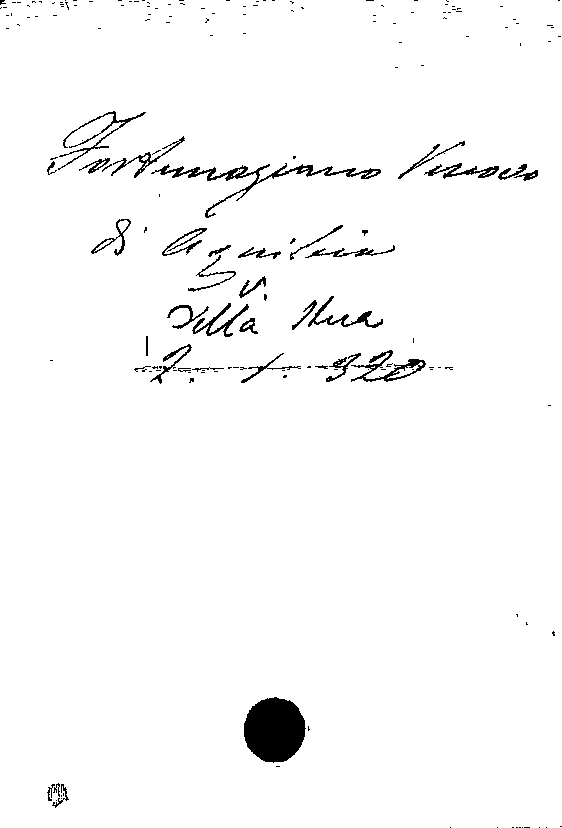 Fortunaziano Vescovo
di Aquileia
V.
Villa
2. 1. 320